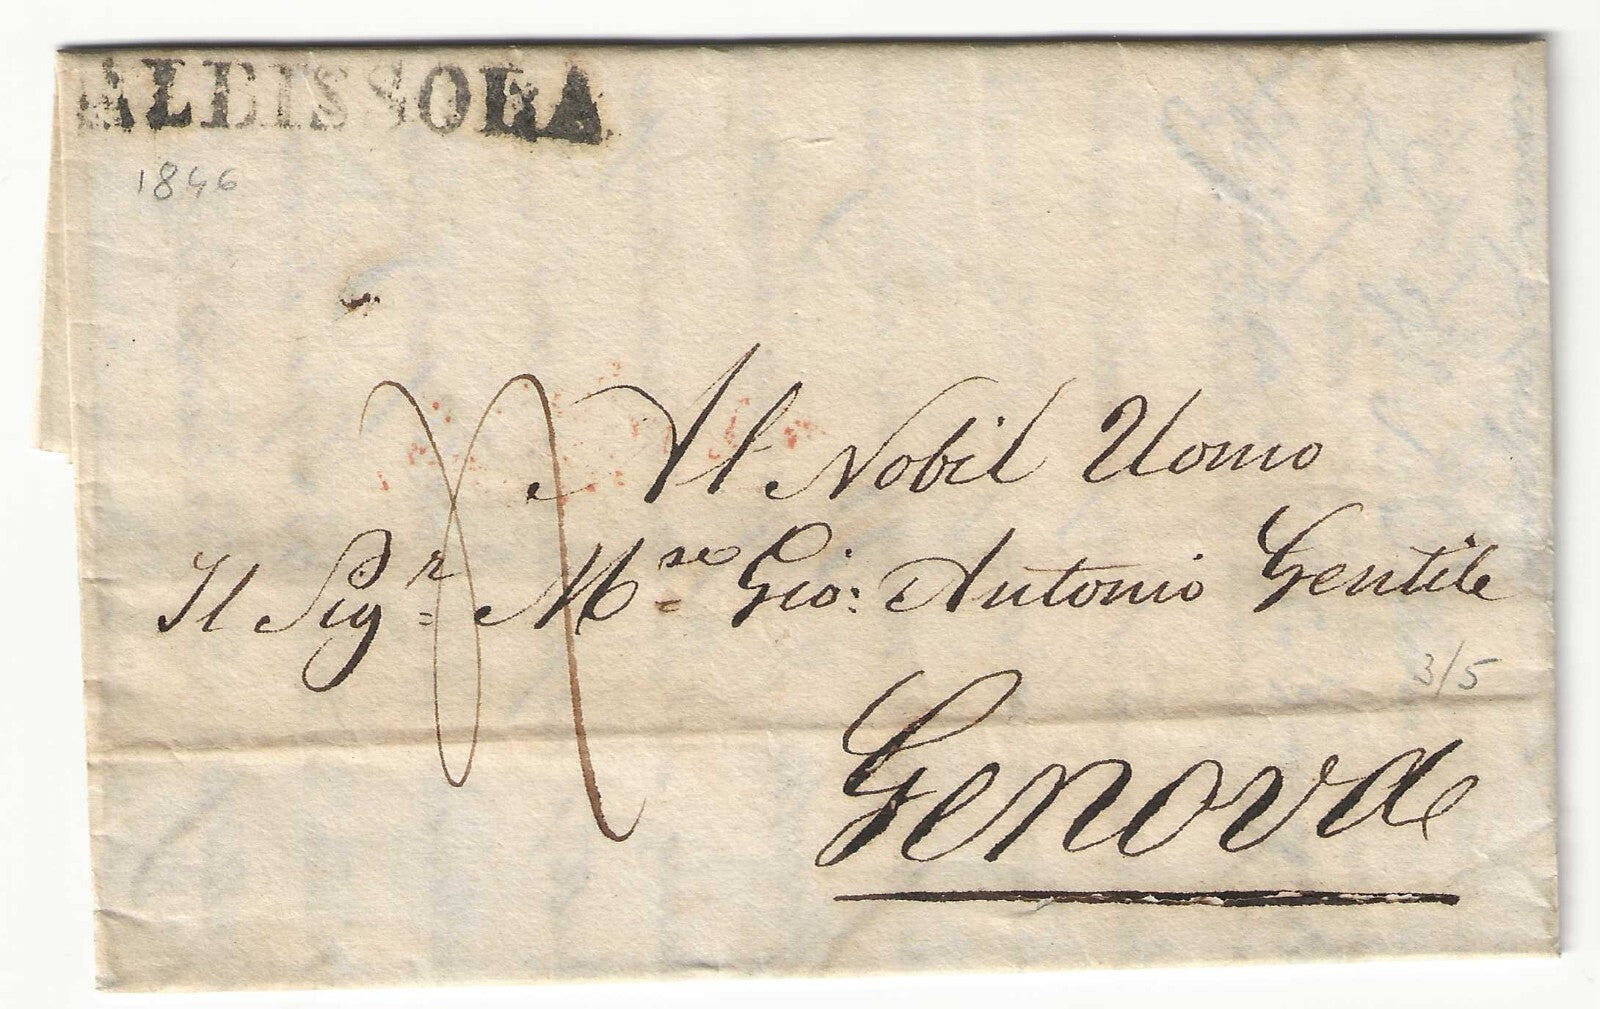 ALBISSOLA
1846
Al Nobil Uomo
Il Sigr. Mse Gio: Antonio Gentile
3/5
Genova